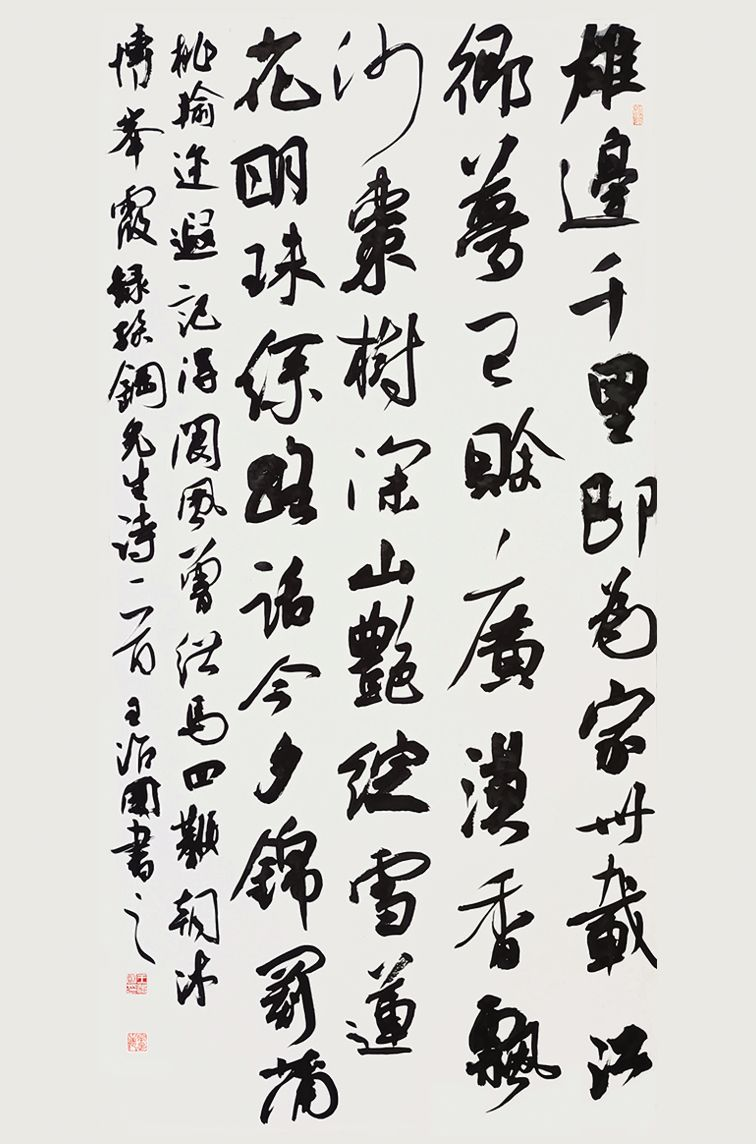 雄邊千里即為家卅載江
鄉夢已賒廣漠香飄
沙棗樹深山艷綻雪蓮
花明珠絲路話今夕錦罽蒲
桃輸迩遐記得閬風曾緤馬回鞭朝沐
博峯霞錄孫鋼先生詩一首王治國書之